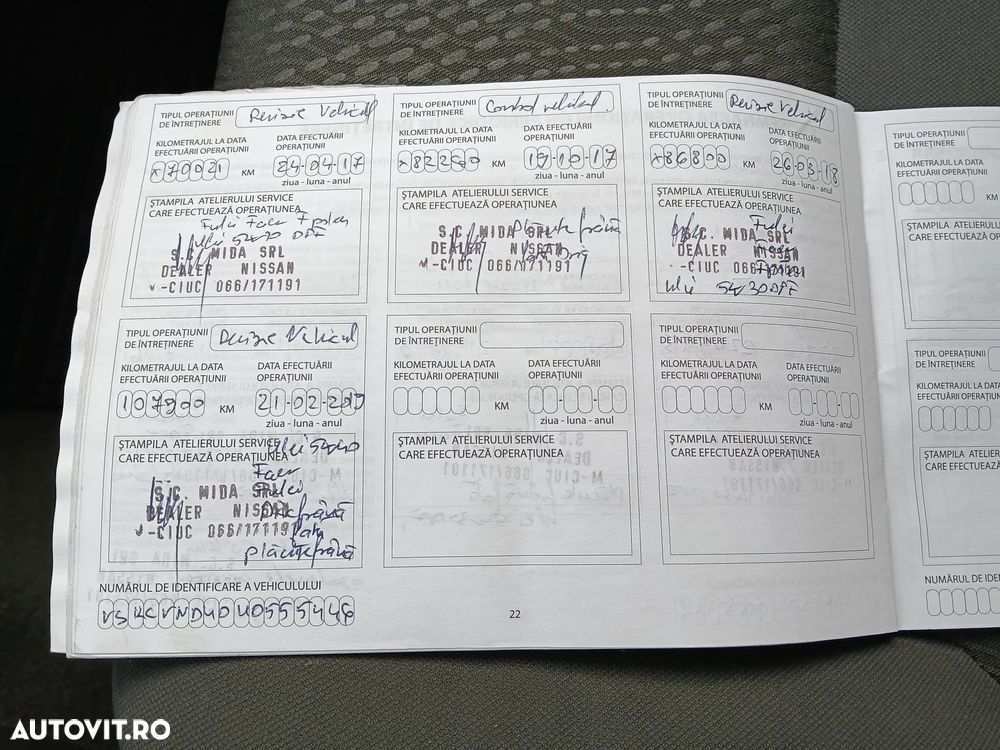 TIPUL OPERAȚIUNII
DE ÎNTREȚINERE
Revizie Vehicul
KILOMETRAJUL LA DATA
EFECTUĂRII OPERAȚIUNII
DATA EFECTUĂRII
OPERAȚIUNII
x70021 KM
24-04-17
ziua - luna - anul
ȘTAMPILA ATELIERULUI SERVICE
CARE EFECTUEAZĂ OPERAȚIUNEA
Ulei 5W30 DPF
S.C. MIDA SRL
DEALER NISSAN
-CIUC 066/171191
TIPUL OPERAȚIUNII
DE ÎNTREȚINERE
Control vehicul.
KILOMETRAJUL LA DATA
EFECTUĂRII OPERAȚIUNII
DATA EFECTUĂRII
OPERAȚIUNII
KM
19-10-17
ziua - luna - anul
ȘTAMPILA ATELIERULUI SERVICE
CARE EFECTUEAZĂ OPERAȚIUNEA
S.C. MIDA SRL
DEALER NISSAN
-CIUC 066/171191
TIPUL OPERAȚIUNII
DE ÎNTREȚINERE
Revizie Vehicul
KILOMETRAJUL LA DATA
EFECTUĂRII OPERAȚIUNII
DATA EFECTUĂRII
OPERAȚIUNII
x86800 KM
26-03-18
ziua - luna - anul
ȘTAMPILA ATELIERULUI SERVICE
CARE EFECTUEAZĂ OPERAȚIUNEA
S.C. MIDA SRL
DEALER NISSAN
-CIUC 066/171191
Ulei 5W30DPF
TIPUL OPERAȚIUNII
DE ÎNTREȚINERE
Revizie Vehicul
KILOMETRAJUL LA DATA
EFECTUĂRII OPERAȚIUNII
DATA EFECTUĂRII
OPERAȚIUNII
107900 KM
21-02-
ziua - luna - anul
ȘTAMPILA ATELIERULUI SERVICE
CARE EFECTUEAZĂ OPERAȚIUNEA
S.C. MIDA SRL
DEALER NISSAN
-CIUC 066/171191
plăcuțe frână
TIPUL OPERAȚIUNII
DE ÎNTREȚINERE
KILOMETRAJUL LA DATA
EFECTUĂRII OPERAȚIUNII
DATA EFECTUĂRII
OPERAȚIUNII
KM
ziua - luna - anul
ȘTAMPILA ATELIERULUI SERVICE
CARE EFECTUEAZĂ OPERAȚIUNEA
TIPUL OPERAȚIUNII
DE ÎNTREȚINERE
KILOMETRAJUL LA DATA
EFECTUĂRII OPERAȚIUNII
DATA EFECTUĂRII
OPERAȚIUNII
KM
ziua - luna - anul
ȘTAMPILA ATELIERULUI SERVICE
CARE EFECTUEAZĂ OPERAȚIUNEA
NUMĂRUL DE IDENTIFICARE A VEHICULULUI
22
TIPUL OPERAȚIUNII
DE ÎNTREȚINERE
KILOMETRAJUL LA DATA
EFECTUĂRII OPERAȚIUNII
ȘTAMPILA ATELIERULUI
CARE EFECTUEAZĂ OPERA
TIPUL OPERAȚIUNII
DE ÎNTREȚINERE
KILOMETRAJUL LA DATA
EFECTUĂRII OPERAȚIUNII
ȘTAMPILA ATELI
CARE EFECTUEAZ
NUMĂRUL DE IDEN
AUTOVIT.RO